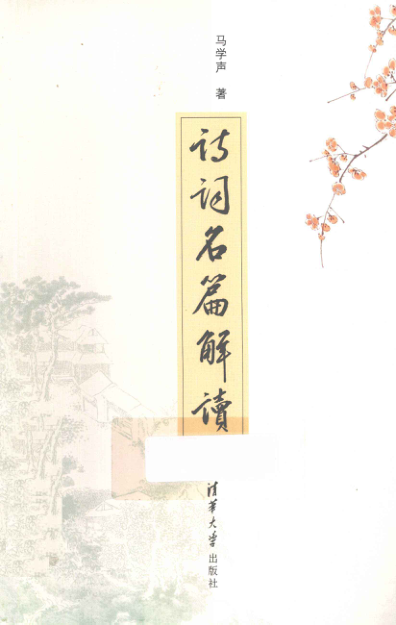 马学声 著
诗词名篇解讀
清华大学出版社